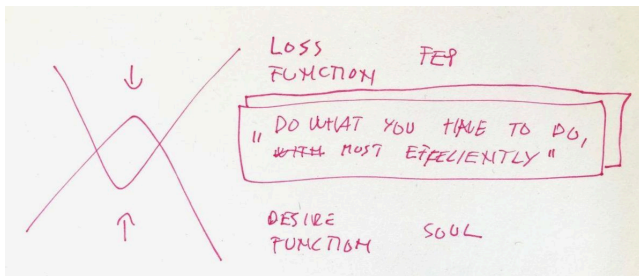 LOSS
FUNCTION
FEP
"DO WHAT YOU HAVE TO DO,
MOST EFFECIENTLY"
DESIRE
FUNCTION
SOUL